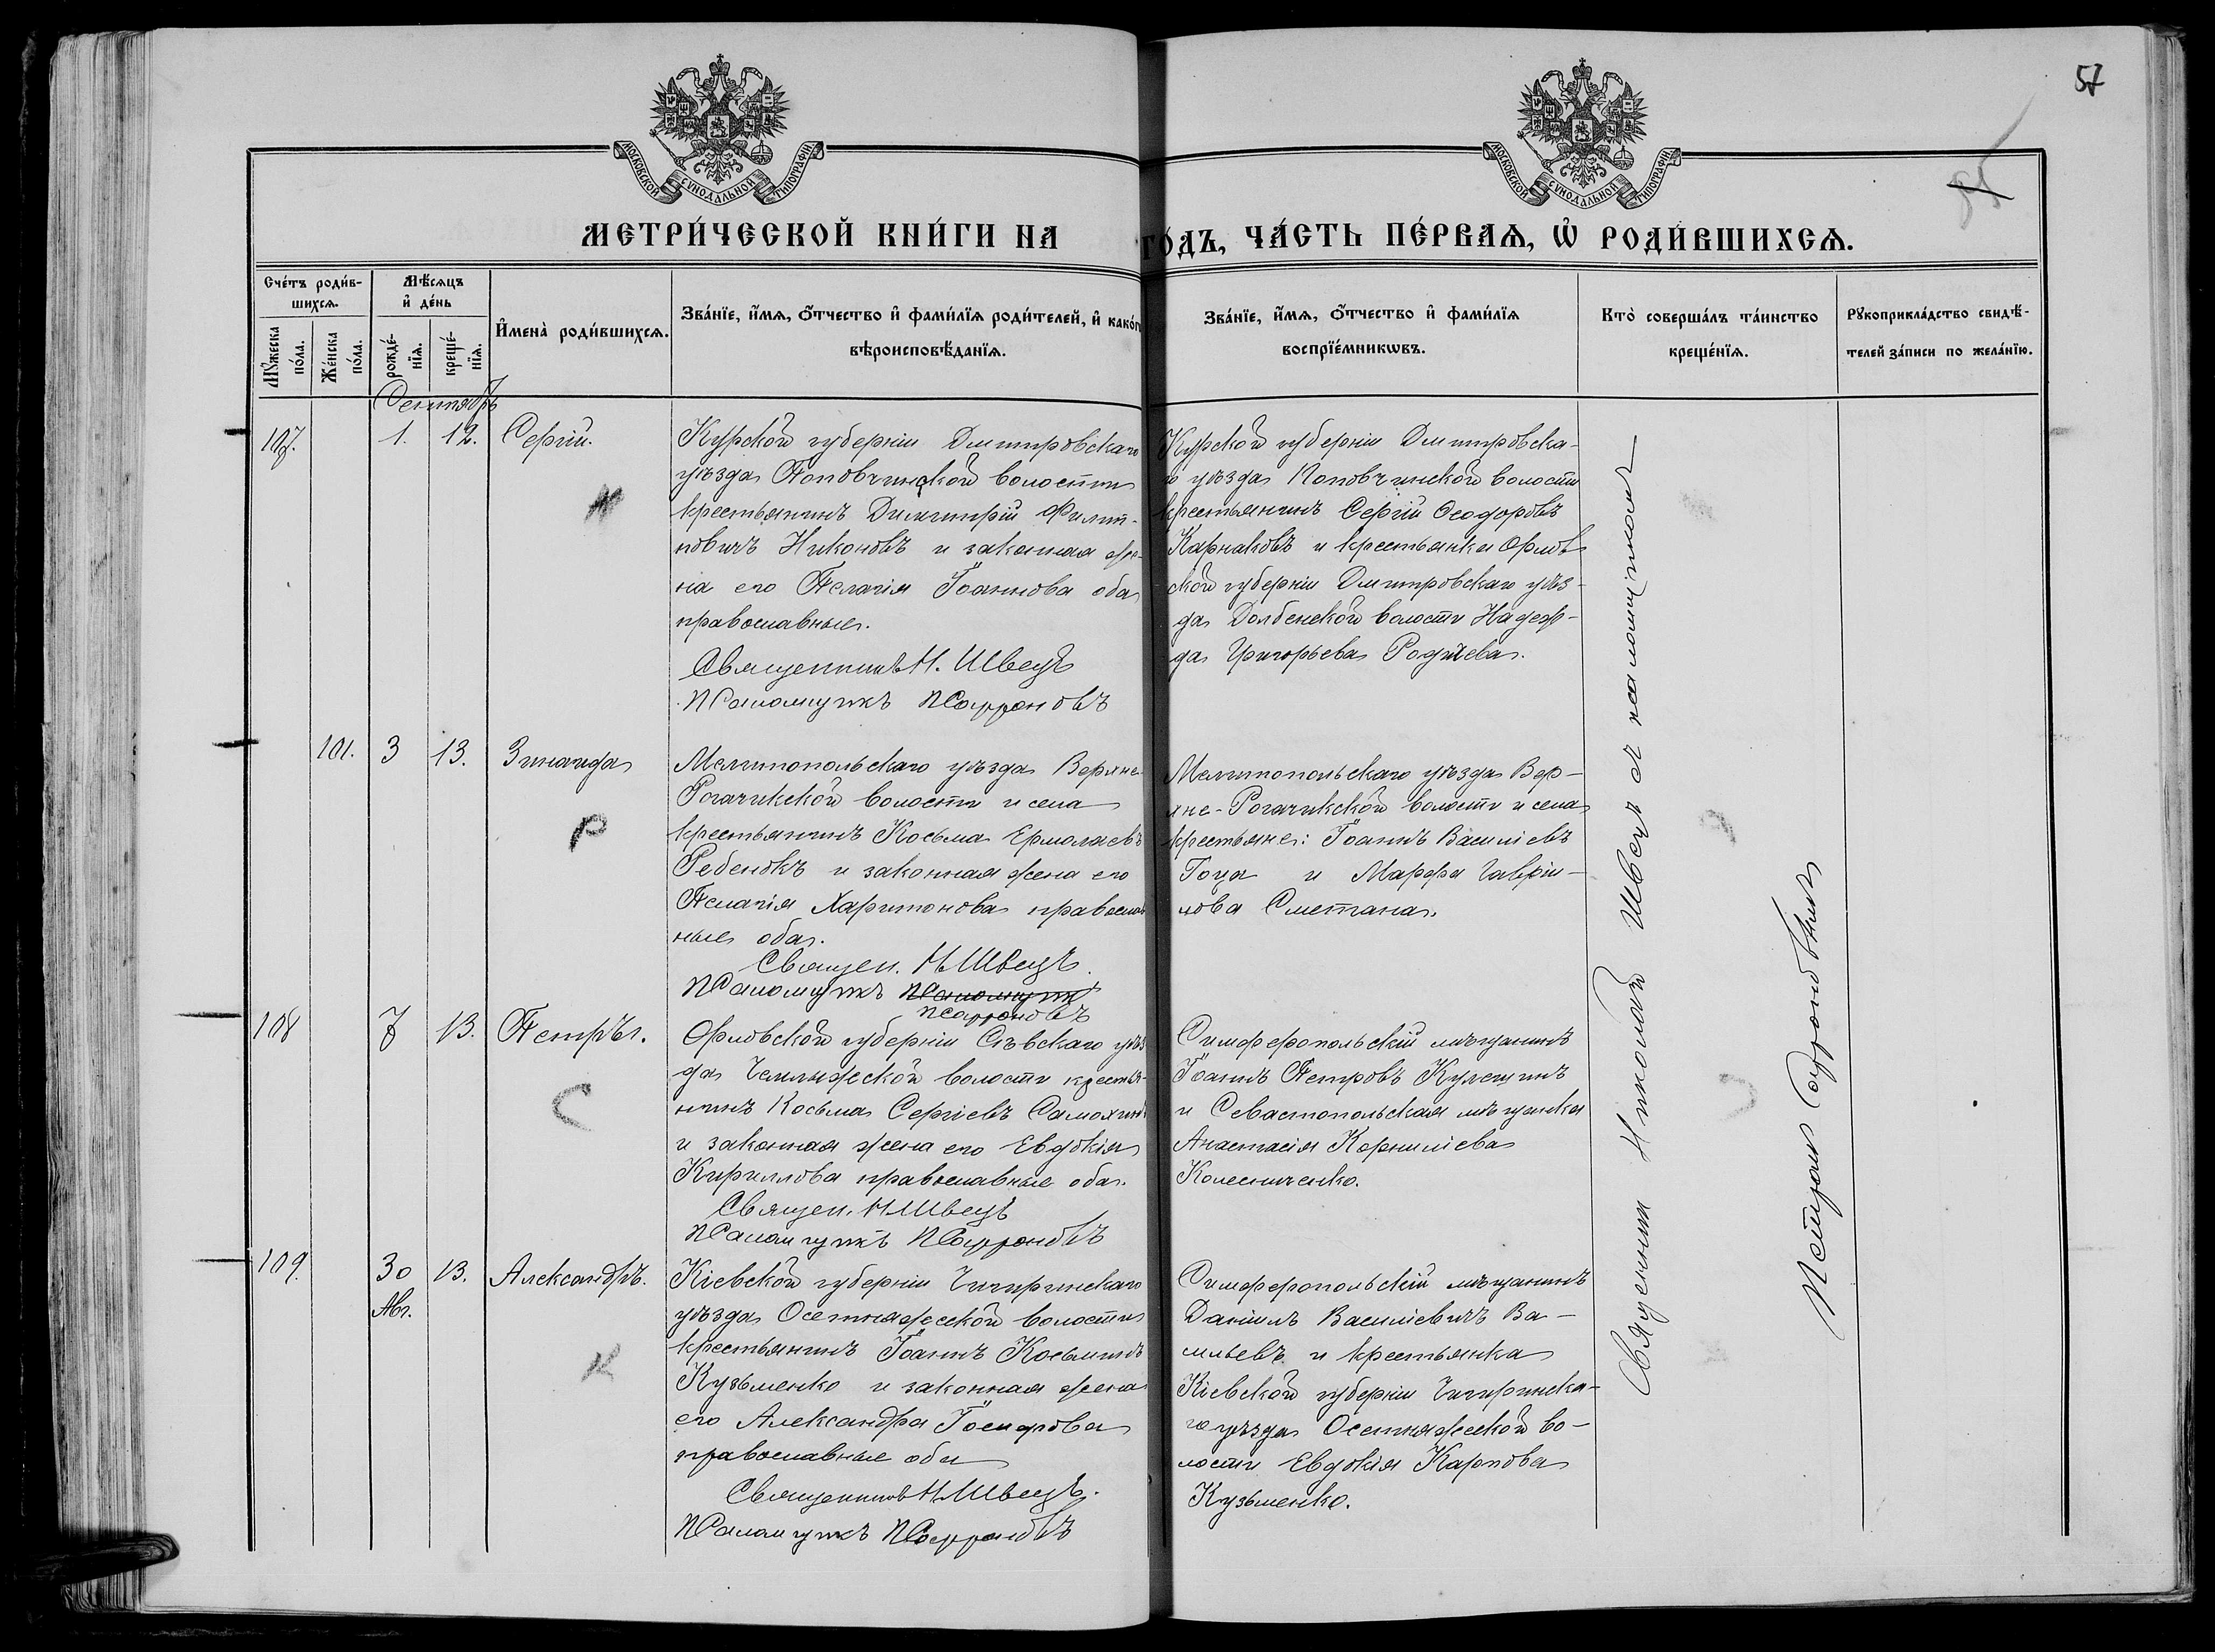 57
МОСКОВСКОЙ СѴНОДАЛЬНОЙ ТИПОГРАФІИ
МОСКОВСКОЙ СѴНОДАЛЬНОЙ ТИПОГРАФІИ
МЕТРИ́ЧЕСКОЙ КНИ́ГИ НА
ГО́ДЪ, ЧА́СТЬ ПЕ́РВАѦ, Ѡ҆ РОДИ́ВШИХСѦ.
Сче́тъ роди́в-
шихсѧ.
Мꙋ́жеска
по́ла.
Же́нска
по́ла.
Мѣ́сѧцъ
и҆ де́нь
рожде́-
нїѧ.
креще́-
нїѧ.
И҆мена̀ роди́вшихсѧ.
Зва́нїе, и҆́мѧ, ѻ҆́тчество и҆ фами́лїѧ роди́телей, и҆ како́гѡ
вѣроисповѣ́данїѧ.
Зва́нїе, и҆́мѧ, ѻ҆́тчество и҆ фами́лїѧ
воспрїе́мникѡвъ.
Кто̀ соверша́лъ та́инство
креще́нїѧ.
Рꙋкоприкла́дство свидѣ́-
телей за́писи по жела́нїю.
Сентябрь
107.
1.
12.
Сергій.
Н
Курской губерніи Дмитровскаго
уѣзда Поповчинской волости
крестьянинъ Димитрій Филип-
повичъ Никоновъ и законная же-
на его Пелагія Іоаннова оба
православные.
Священникъ Н. Швецъ
Псаломщикъ П Софроновъ
Курской губерніи Дмитровска-
го уѣзда Поповчинской волости
крестьянинъ Сергій Ѳеодоровъ
Карнаковъ и крестьянка Орлов
ской губерніи Дмитровскаго уѣз-
да Долбенской волости Надеж-
да Григорьева Родичева.
101.
3
13.
Зинаида
Р
Мелитопольскаго уѣзда Верхне-
Рогачикской волости и села
крестьянинъ Косьма Ермолаевъ
Ребенокъ и законная жена его
Пелагія Харитонова православ
ные оба.
Священ. Н Швецъ.
Псаломщикъ Псаломщик
П Софроновъ
Мелитопольскаго уѣзда Вер-
хне-Рогачикской волости и села
крестьяне: Іоаннъ Василіевъ
Гоца и Марфа Гаврі-
лова Сметана.
108
7
13.
Петръ.
С
Орловской губерніи Сѣвскаго уѣз
да Чемлыжской волости крестья-
нинъ Косьма Сергіевъ Самохинъ
и законная жена его Евдокія
Кириллова православные оба.
Священ. Н Швецъ
Псаломщикъ П Софроновъ
Симферопольскій мѣщанинъ
Іоаннъ Петровъ Кулешинъ
и Севастопольская мѣщанка
Анастасія Корниліева
Колесниченко.
109.
30
Авг.
13.
Александръ.
К
Кіевской губерніи Чигиринскаго
уѣзда Осетняжской волости
крестьянинъ Іоаннъ Косьминъ
Кузьменко и законная жена
его Александра Іосифова
православные оба
Священникъ Н Швецъ.
Псаломщикъ П Софроновъ
Симферопольскій мѣщанинъ
Даніилъ Василіевичъ Ва-
сильевъ и крестьянка
Кіевской губерніи Чигиринска-
го уѣзда Осетняжской во-
лости Евдокія Карпова
Кузьменко.
Священникъ Николай Швецъ съ псаломщикомъ
Софроновымъ